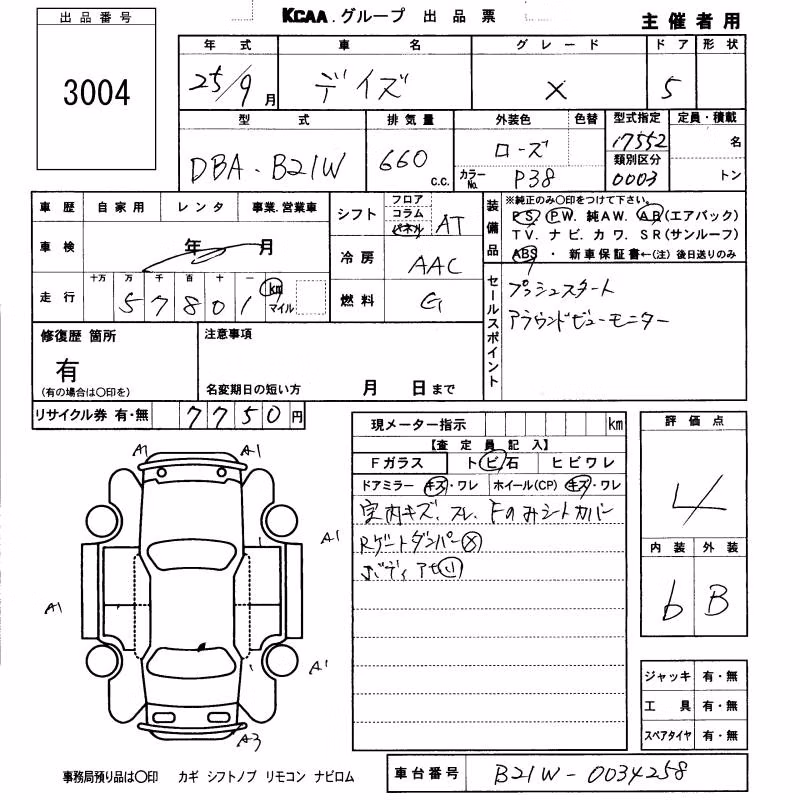 出品番号
3004
KCAA.グループ 出品票
主催者用
年式 車名 グレード ドア 形状
25/9月 デイズ X 5
型式 排気量 外装色 色替 型式指定 定員・積載
DBA-B21W 660 c.c. ローズ 17552 名
カラーNo. P38 類別区分 0003 トン
車歴 自家用 レンタ 事業.営業車
シフト フロア コラム パネル AT
車検 年 月
冷房 AAC
走行 十万 万 千 百 十 一 km マイル
57801
燃料 G
装備品
※純正のみ○印をつけて下さい。
PS. PW. 純AW. AB(エアバック)
TV. ナビ. カワ. SR(サンルーフ)
ABS ・ 新車保証書←(注)後日送りのみ
セールスポイント
プッシュスタート
アラウンドビューモニター
修復歴 箇所
有
(有の場合は○印を)
注意事項
名変期日の短い方 月 日まで
リサイクル券 有・無 7750円
現メーター指示 km
【査定員記入】
Fガラス トビ石 ヒビワレ
ドアミラー キズ・ワレ ホイール(CP) キズ・ワレ
室内キズ、スレ、Fのみシートカバー
Rゲートダンパー×
ボディアセ小
評価点
4
内装 外装
b B
ジャッキ 有・無
工具 有・無
スペアタイヤ 有・無
A1 A1
A1
A1
A1
A3
事務局預り品は○印 カギ シフトノブ リモコン ナビロム
車台番号 B21W-0034258